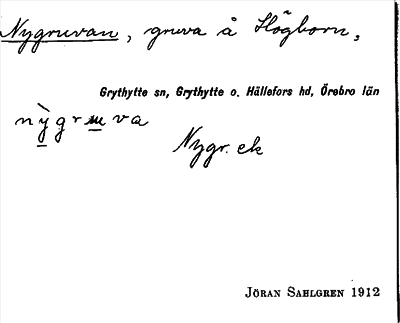 Nygruvan, gruva å Högborn,
Grythytte sn, Grythytte o. Hällefors hd, Örebro län
nỳgruva
Nygr. ek
JÖRAN SAHLGREN 1912